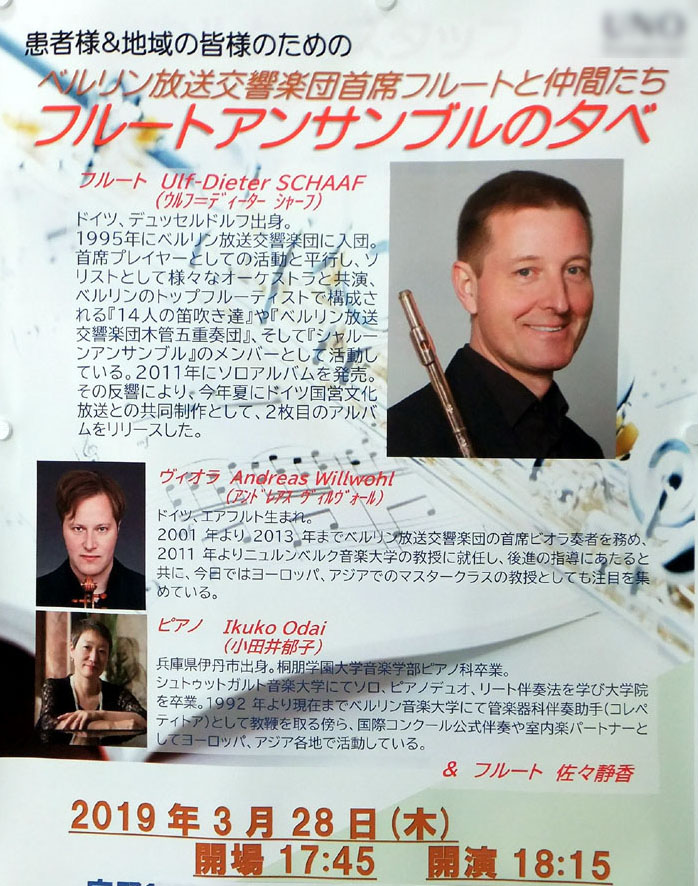 UNO
患者様&地域の皆様のための
ベルリン放送交響楽団首席フルートと仲間たち
フルートアンサンブルの夕べ
フルート Ulf-Dieter SCHAAF
(ウルフ=ディーター シャーフ)
ドイツ、デュッセルドルフ出身。
1995年にベルリン放送交響楽団に入団。
首席プレイヤーとしての活動と平行し、ソ
リストとして様々なオーケストラと共演、
ベルリンのトップフルーティストで構成さ
れる『14人の笛吹き達』や『ベルリン放送
交響楽団木管五重奏団』、そして『シャルー
ンアンサンブル』のメンバーとして活動し
ている。2011年にソロアルバムを発売。
その反響により、今年夏にドイツ国営文化
放送との共同制作として、2枚目のアルバ
ムをリリースした。
ヴィオラ Andreas Willwohl
(アンドレアス ヴィルヴォール)
ドイツ、エアフルト生まれ。
2001 年より、2013 年までベルリン放送交響楽団の首席ビオラ奏者を務め、
2011 年よりニュルンベルク音楽大学の教授に就任し、後進の指導にあたると
共に、今日ではヨーロッパ、アジアでのマスタークラスの教授としても注目を集
めている。
ピアノ Ikuko Odai
(小田井郁子)
兵庫県伊丹市出身。桐朋学園大学音楽学部ピアノ科卒業。
シュトゥットガルト音楽大学にてソロ、ピアノデュオ、リート伴奏法を学び大学院
を卒業。1992 年より現在までベルリン音楽大学にて管楽器科伴奏助手(コレペ
ティトア)として教鞭を取る傍ら、国際コンクール公式伴奏や室内楽パートナーと
してヨーロッパ、アジア各地で活動している。
& フルート 佐々静香
2019 年 3 月 28 日 (木)
開場 17:45 開演 18:15